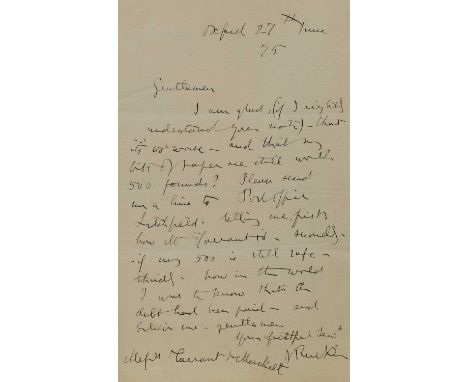 Oxford 27th June
75
Gentlemen
I am glad, (if I rightly
understand your note) - that
it is no worse - and that my
bits of paper are still worth
500 pounds? Please send
me a line to Post Office
Lichfield. telling me, first,
how Mr Tarrant is - secondly -
if my 500 is still safe -
thirdly - how in the world
I was to know that the
debt had been paid - and
believe me - gentlemen
Your faithful Servt
Messrs Tarrant & J Ruskin